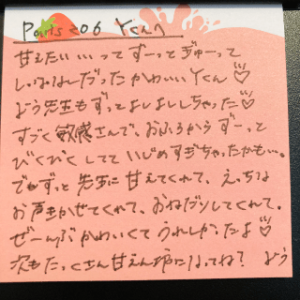 Paris 206 Yくんへ
甘えたい…ってずーっとぎゅーって
しっぱなしだったかわいいYくん♡
よう先生もずっとよしよししちゃった♡
すごく敏感さんで、おふろからずーっと
びくびくしてていじめすぎちゃったかも…。
でもずっと先生に甘えてくれて、えっちな
お声きかせてくれて、おねだりしてくれて。
ぜーんぶかわいくてうれしかったよ♡
次もたっくさん甘えん坊になってね? よう